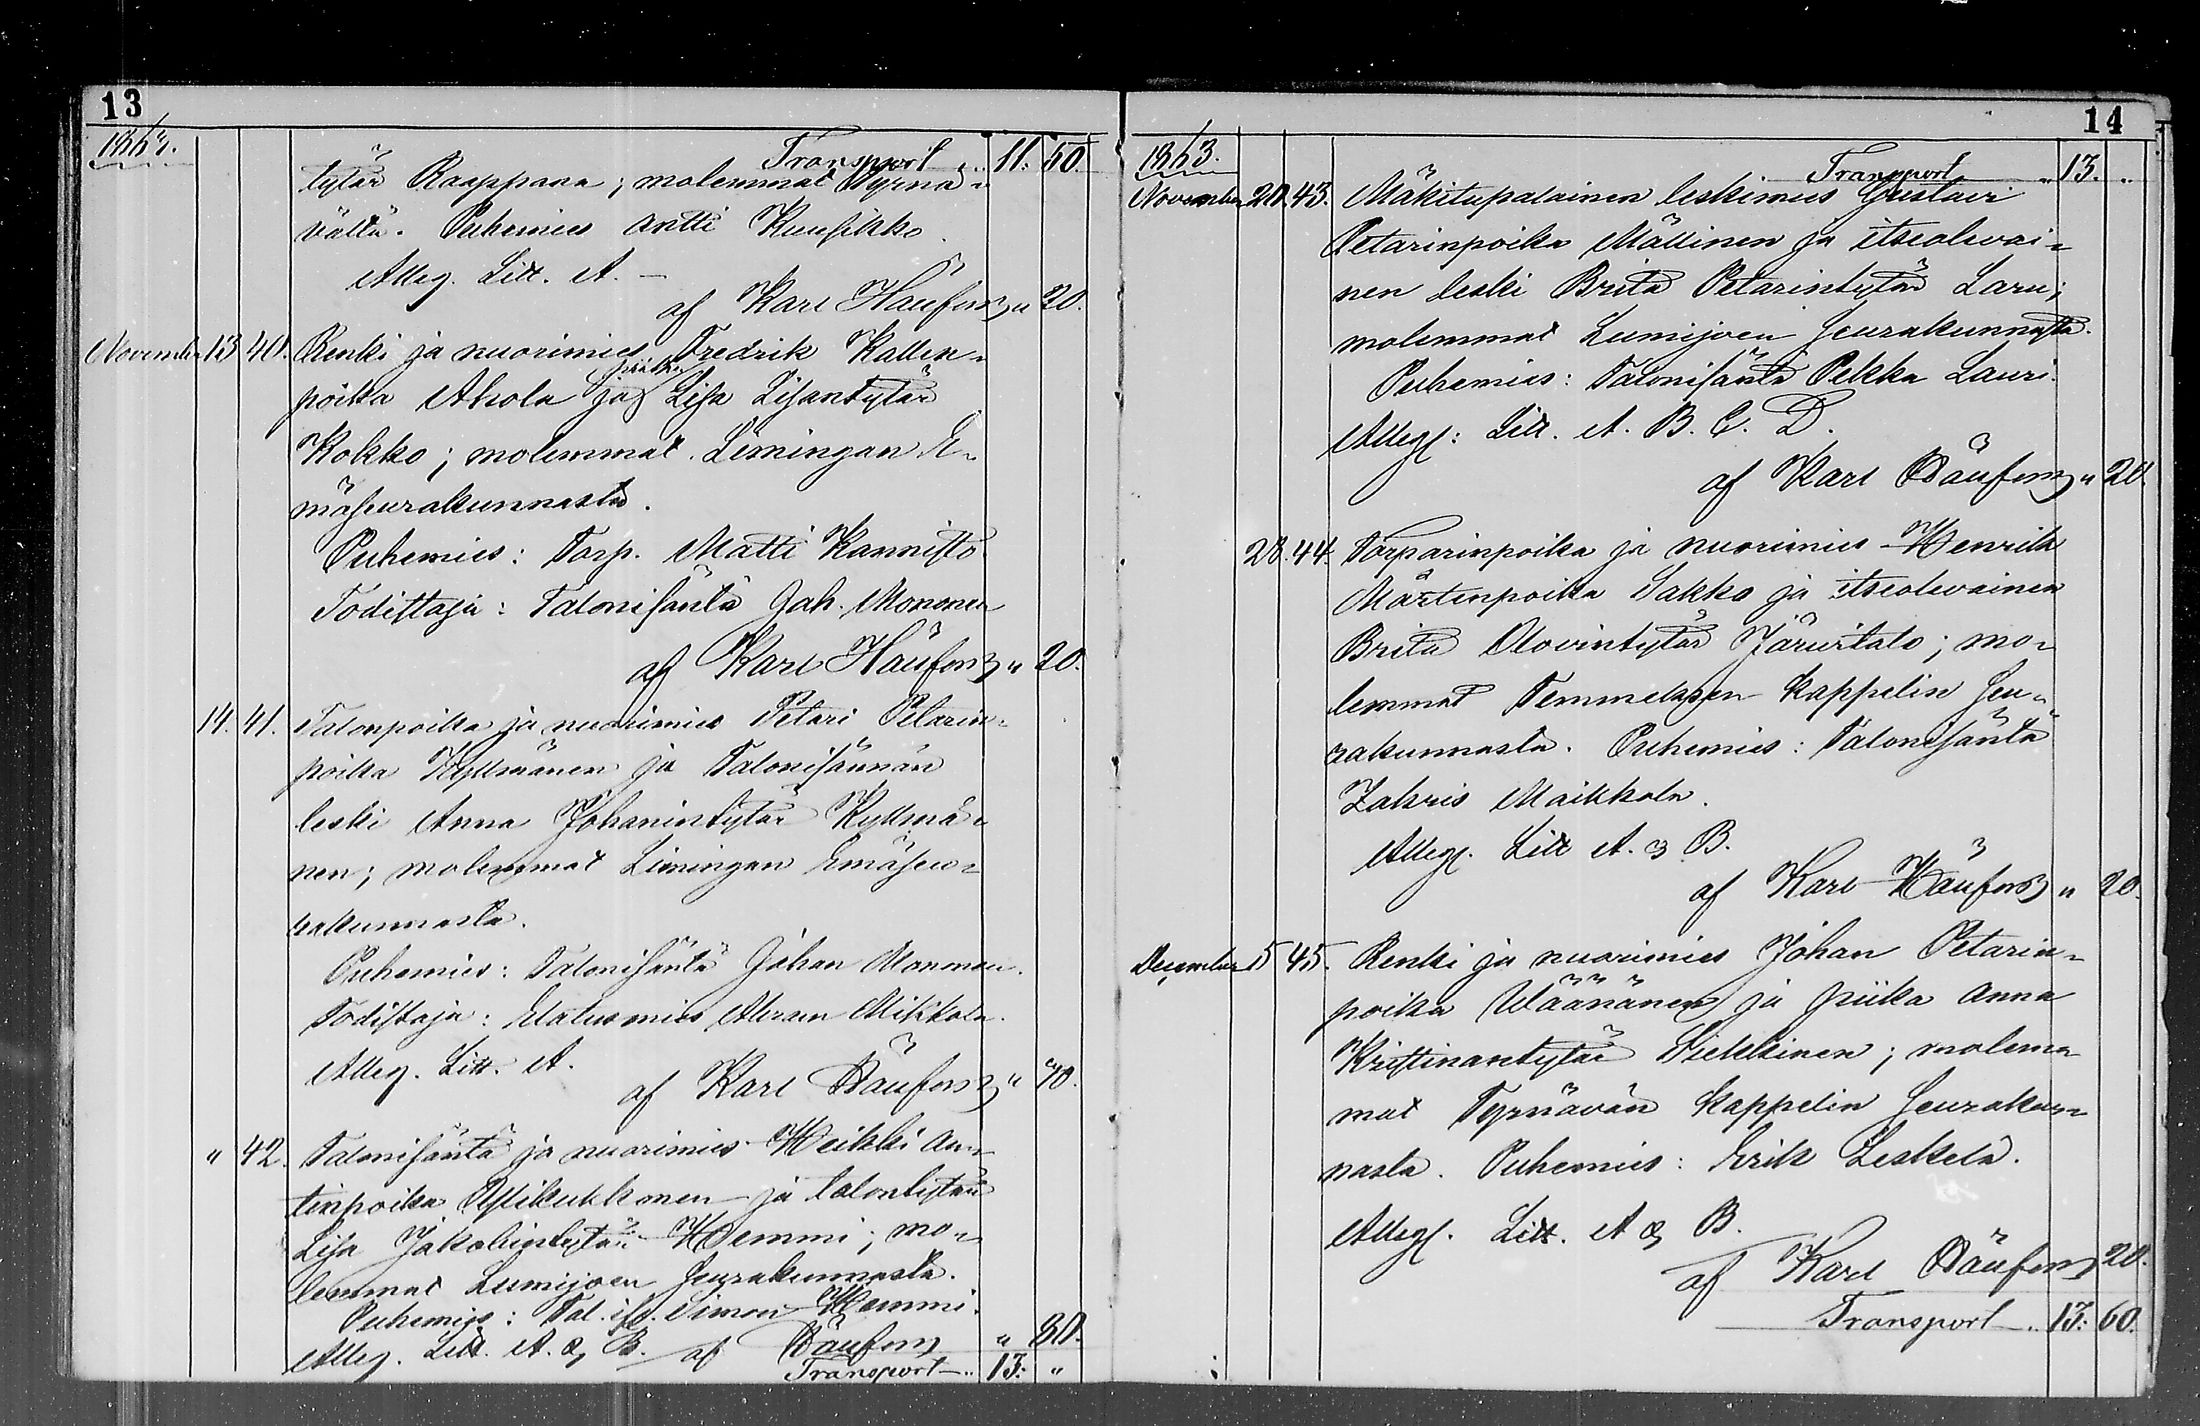 13
1863.
Transport " 11: 50.
tytär Raappana; molemmat Tyrnä-
vältä. Puhemies Antti Kuusikko.
Alleg. Litt. A. —
af Karl Häüfors " 20.
November 13 40. Renki ja nuorimies Fredrik Kallen-
poika Ahola ja piika Lisa Lisantytär
Kokko; molemmat Limingan E-
mäseurakunnasta.
Puhemies: Torp. Matti Kannisto
Todistaja: Talonisäntä Joh. Mononen
af Karl Häüfors " 20.
14. 41. Talonpoika ja nuorimies Petari Petarin-
poika Kyllmänen ja Talonisännän
leski Anna Johanintytär Kyllmä-
nen; molemmat Limingan Emäseu-
rakunnasta.
Puhemies: Talonisäntä Johan Mononen.
Todistaja: Elatusmies Abram Mikkola.
Alleg. Litt. A.
af Karl Häüfors " 40.
" 42. Talonisäntä ja nuorimies Heikki An-
tinpoika Pitkukkonen ja talontytär
Lisa Jakobintytär Hemmi; mo-
lemmat Lumijoen seurakunnasta.
Puhemies: Tal. is. Simon Hemmi.
Alleg. Litt. A. & B. af Häüfors " 80.
Transport " 13: "
14
1863.
Transport " 13. "
November 20. 43. Mäkitupalainen leskimies Gustavi
Petarinpoika Mällinen ja itseolevai-
nen leski Brita Petarintytär Laru;
molemmat Lumijoen seurakunnasta.
Puhemies: Talonisäntä Pekka Lauri.
Alleg: Litt. A. B. C. D.
af Karl Häüfors " 20.
28. 44. Torparinpoika ja nuorimies Henrik
Mårtenpoika Sakko ja itseolevainen
Brita Olovintytär Järvitalo; mo-
lemmat Temmeksen kappelin seu-
rakunnasta. Puhemies: Talonisäntä
Zakris Maikkola.
Alleg. Litt A. & B.
af Karl Häüfors " 20.
December 5 45. Renki ja nuorimies Johan Petarin-
poika Wäänänen ja piika Anna
Kristinantytär Siekkinen; molem-
mat Tyrnävän kappelin seurakun-
nasta. Puhemies: Erik Leskelä.
Alleg. Litt. A & B.
af Karl Häüfors 20.
Transport " 13: 60.